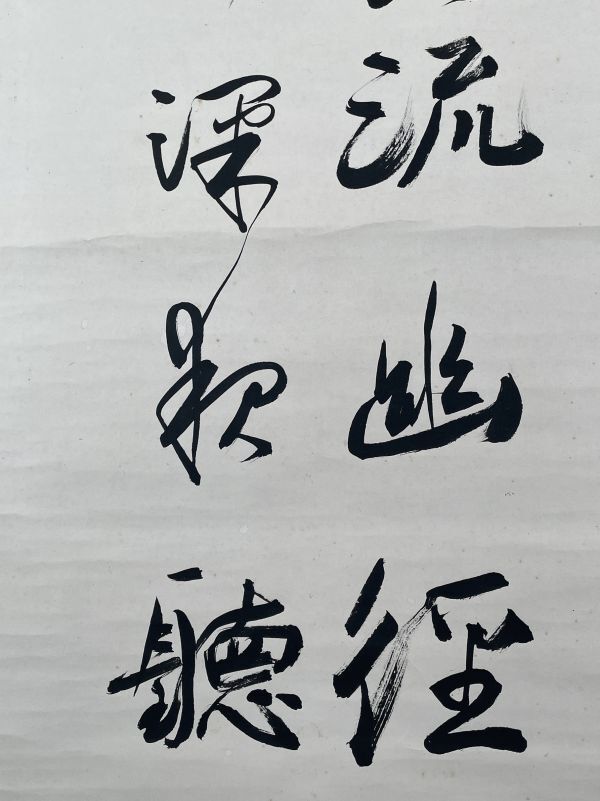 流幽徑
深夜聽